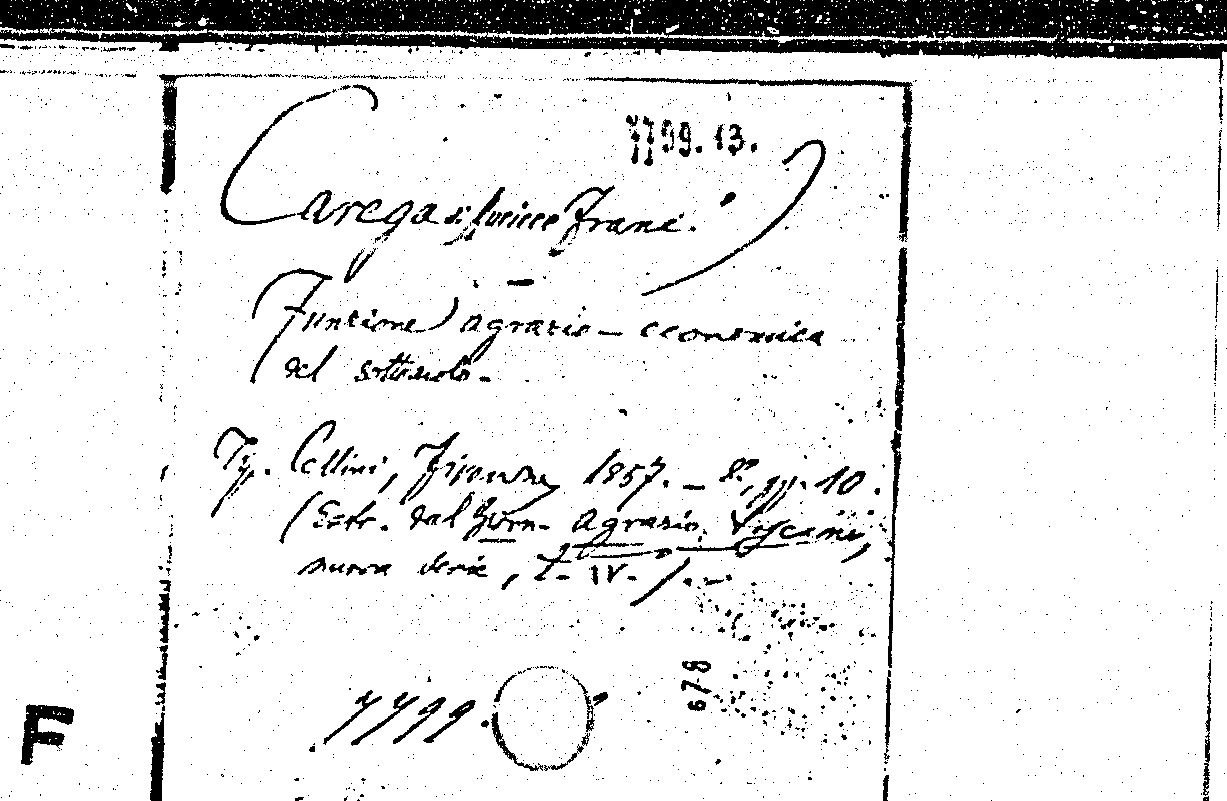 7799.13.
Carega di Muricce Franc.°
Funzione agrario-economica
del sottosuolo.
Tip. Cellini, Firenze, 1857. - 8°, pp. 10.
(Estr. dal Giorn. Agrario Toscano,
nuova serie, t. IV.).-
678
7799.
F